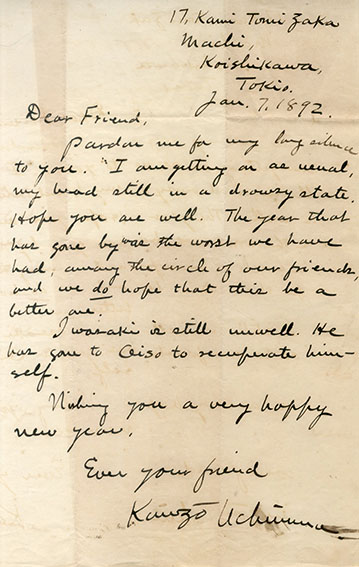 17, Kami Tomi Zaka
Machi,
Koishikawa,
Tokio.
Jan. 7, 1892.
Dear Friend,
Pardon me for my long silence
to you. I am getting on as usual,
my head still in a drowsy state.
Hope you are well. The year that
has gone by was the worst we have
had, among the circle of our friends,
and we do hope that this be a
better one.
Iwasaki is still unwell. He
has gone to Oiso to recuperate him-
self.
Wishing you a very happy
new year,
Ever your friend
Kanzō Uchimura